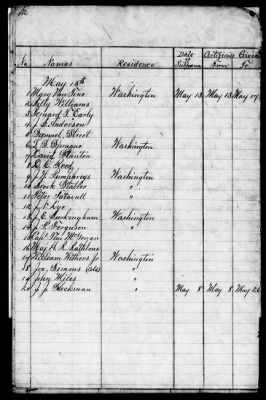 No. Names Residence Date Subpoena Certificate From Given To
May 13th
1 Mary Van Tine Washington May 13 May 13 May 17
2 Billy Williams
3 Early
4 J. B. Anderson
5 Street
6 J. B. Washington
7 David Stanton "
8 Reed "
9 J. Humphreys Washington
10 Brook Stabler "
11 Peter Taltavull "
12 J. P. Dye "
13 J. E. Buckingham Washington
14 J. P. Ferguson "
15 Capt. Theo McGowan "
16 Maj H. R. Rathbone "
17 William Withers Jr Washington
18 Joe Simms (Col) "
19 John Miles "
20 J. J. "  May 8 May 8 May 26